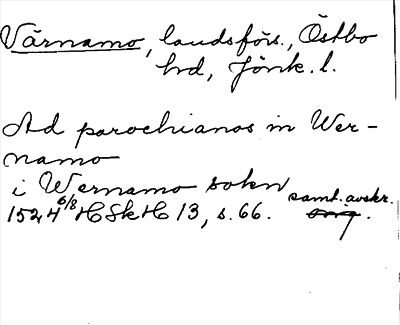 Värnamo, landsförs., Östbo
hd, Jönk. l.
Ad parochianos in Wer-
namo
i Wernamo sokn
1524 6/8 HSkH 13, s. 66. samt. avskr.
orig.